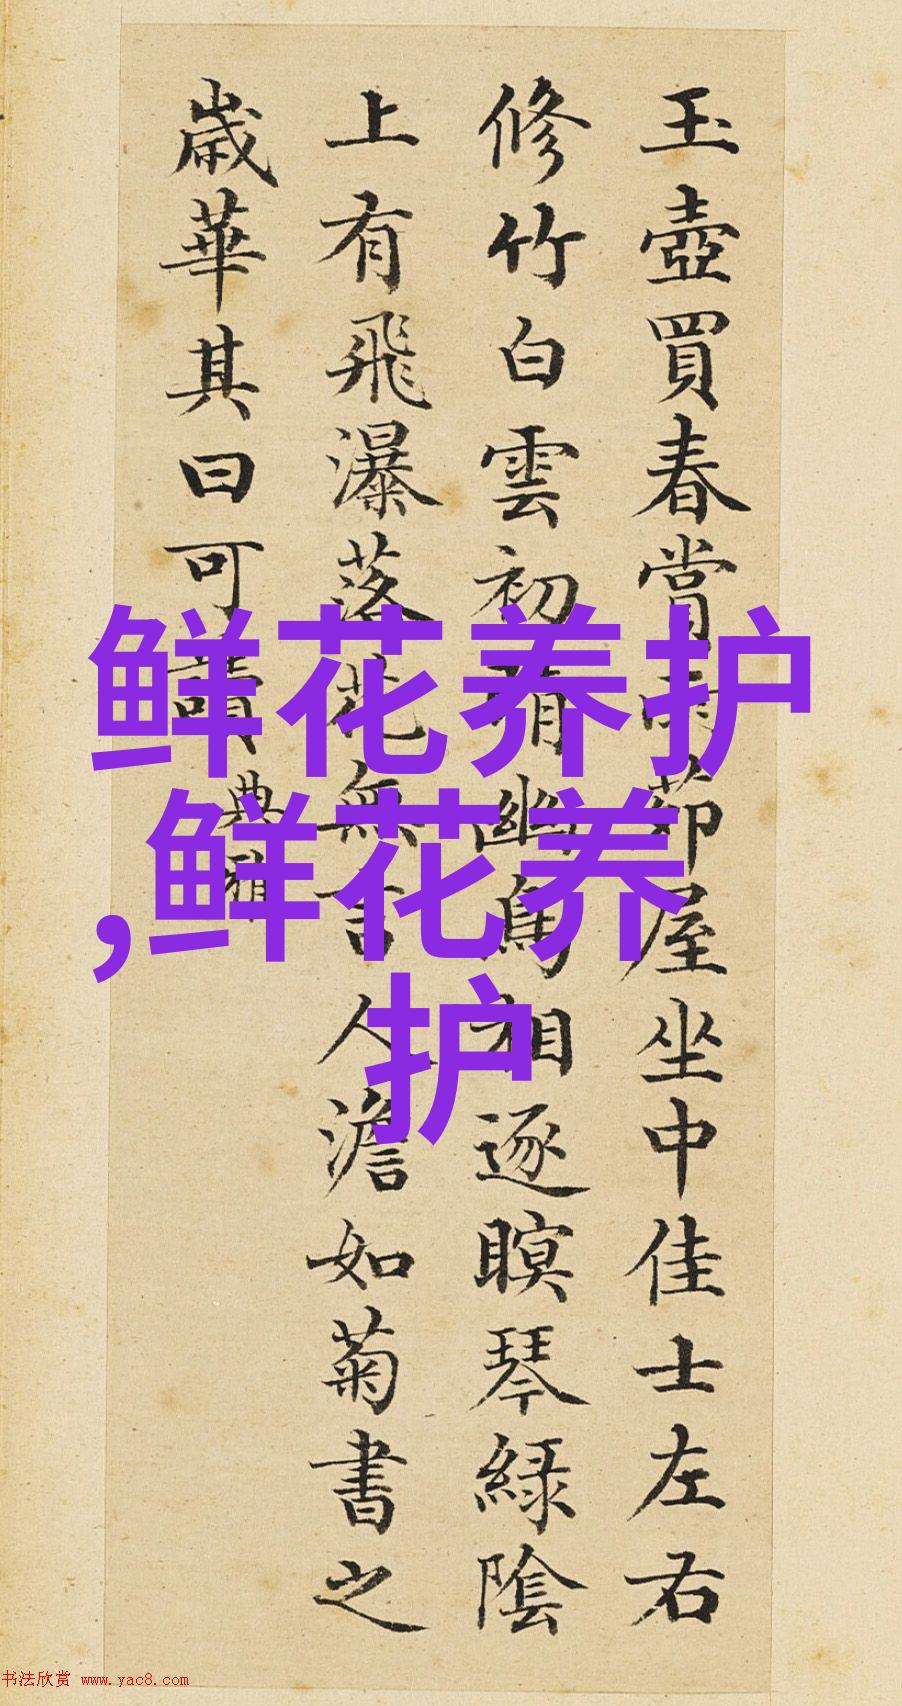 玉壺買春賞雨茆屋坐中佳士左右
修竹白雲初晴幽鳥相逐瞑琴綠陰
上有飛瀑落花無言人澹如菊書之
歲華其曰可讀
典雅
鲜花养护
,鲜花养
护
书法欣赏 www.yac8.com